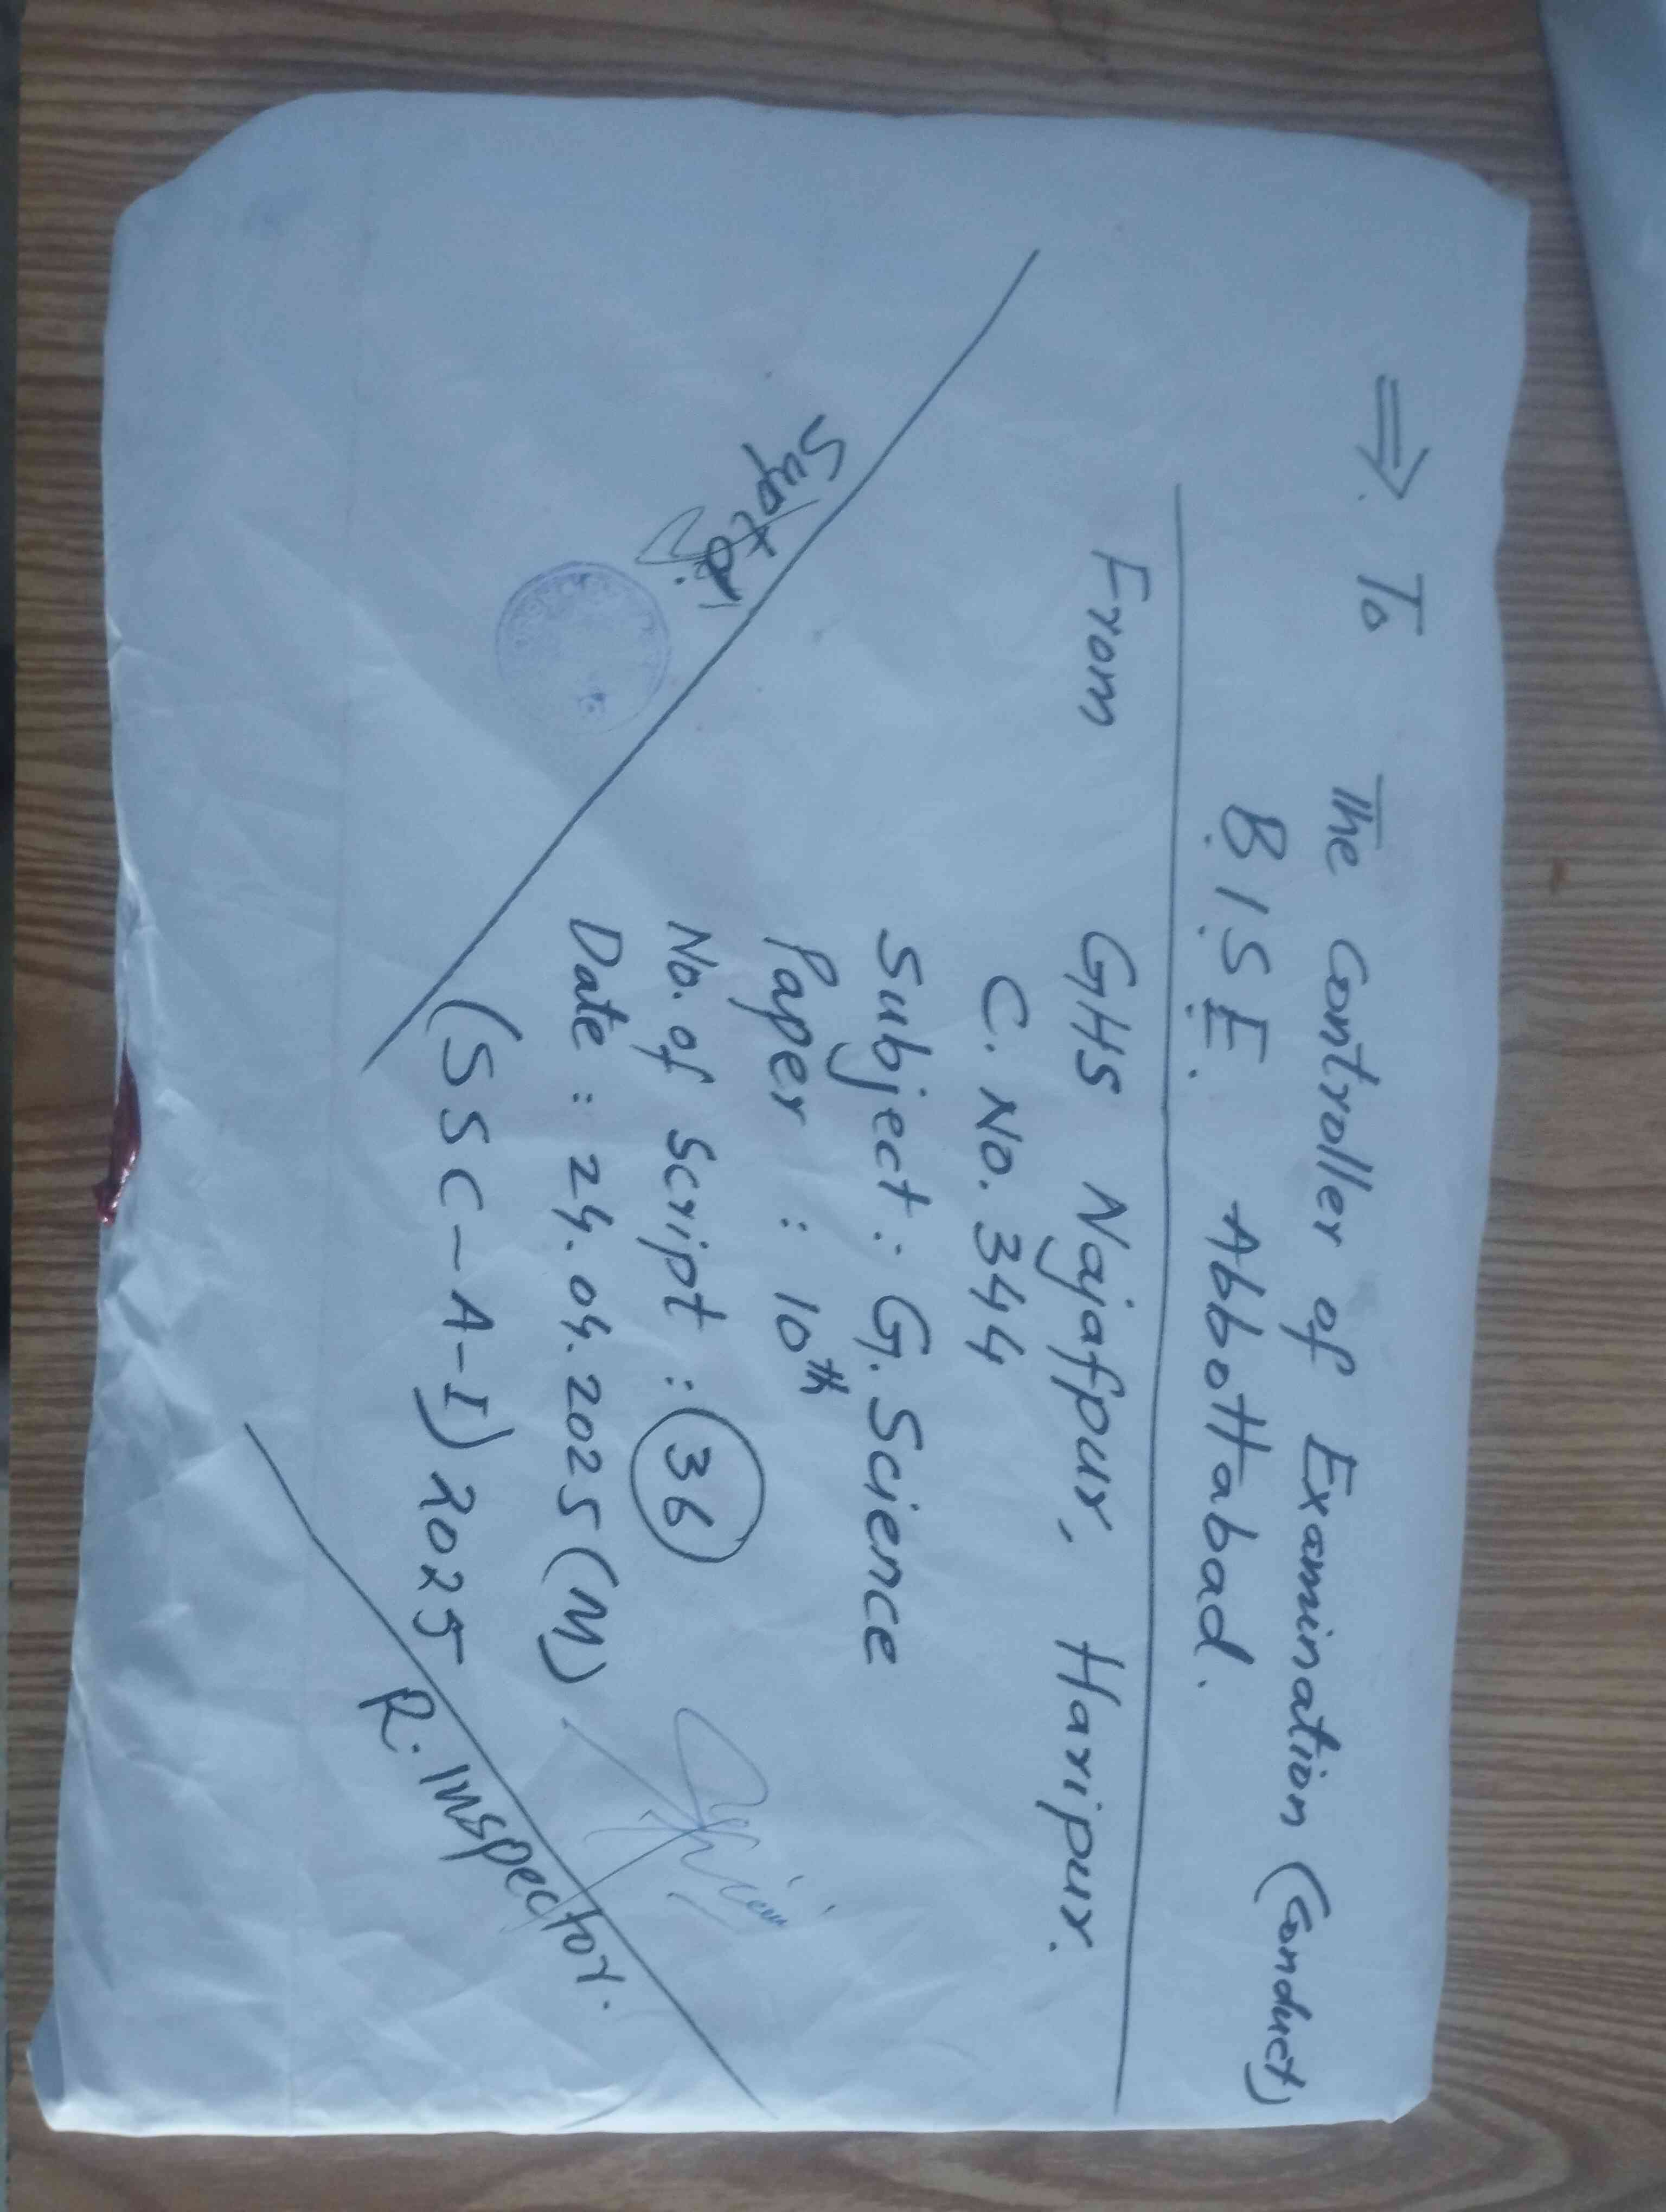 ⇒. To The Controller of Examination (Conduct)
B.I.S.E. Abbottabad.
From GHS Najafpur, Haripur.
C. No. 344
Subject : G. Science
Paper : 10th
No. of Script : 36
Date : 24.04.2025 (M)
(SSC-A-I) 2025
Suptd.
R. Inspector.